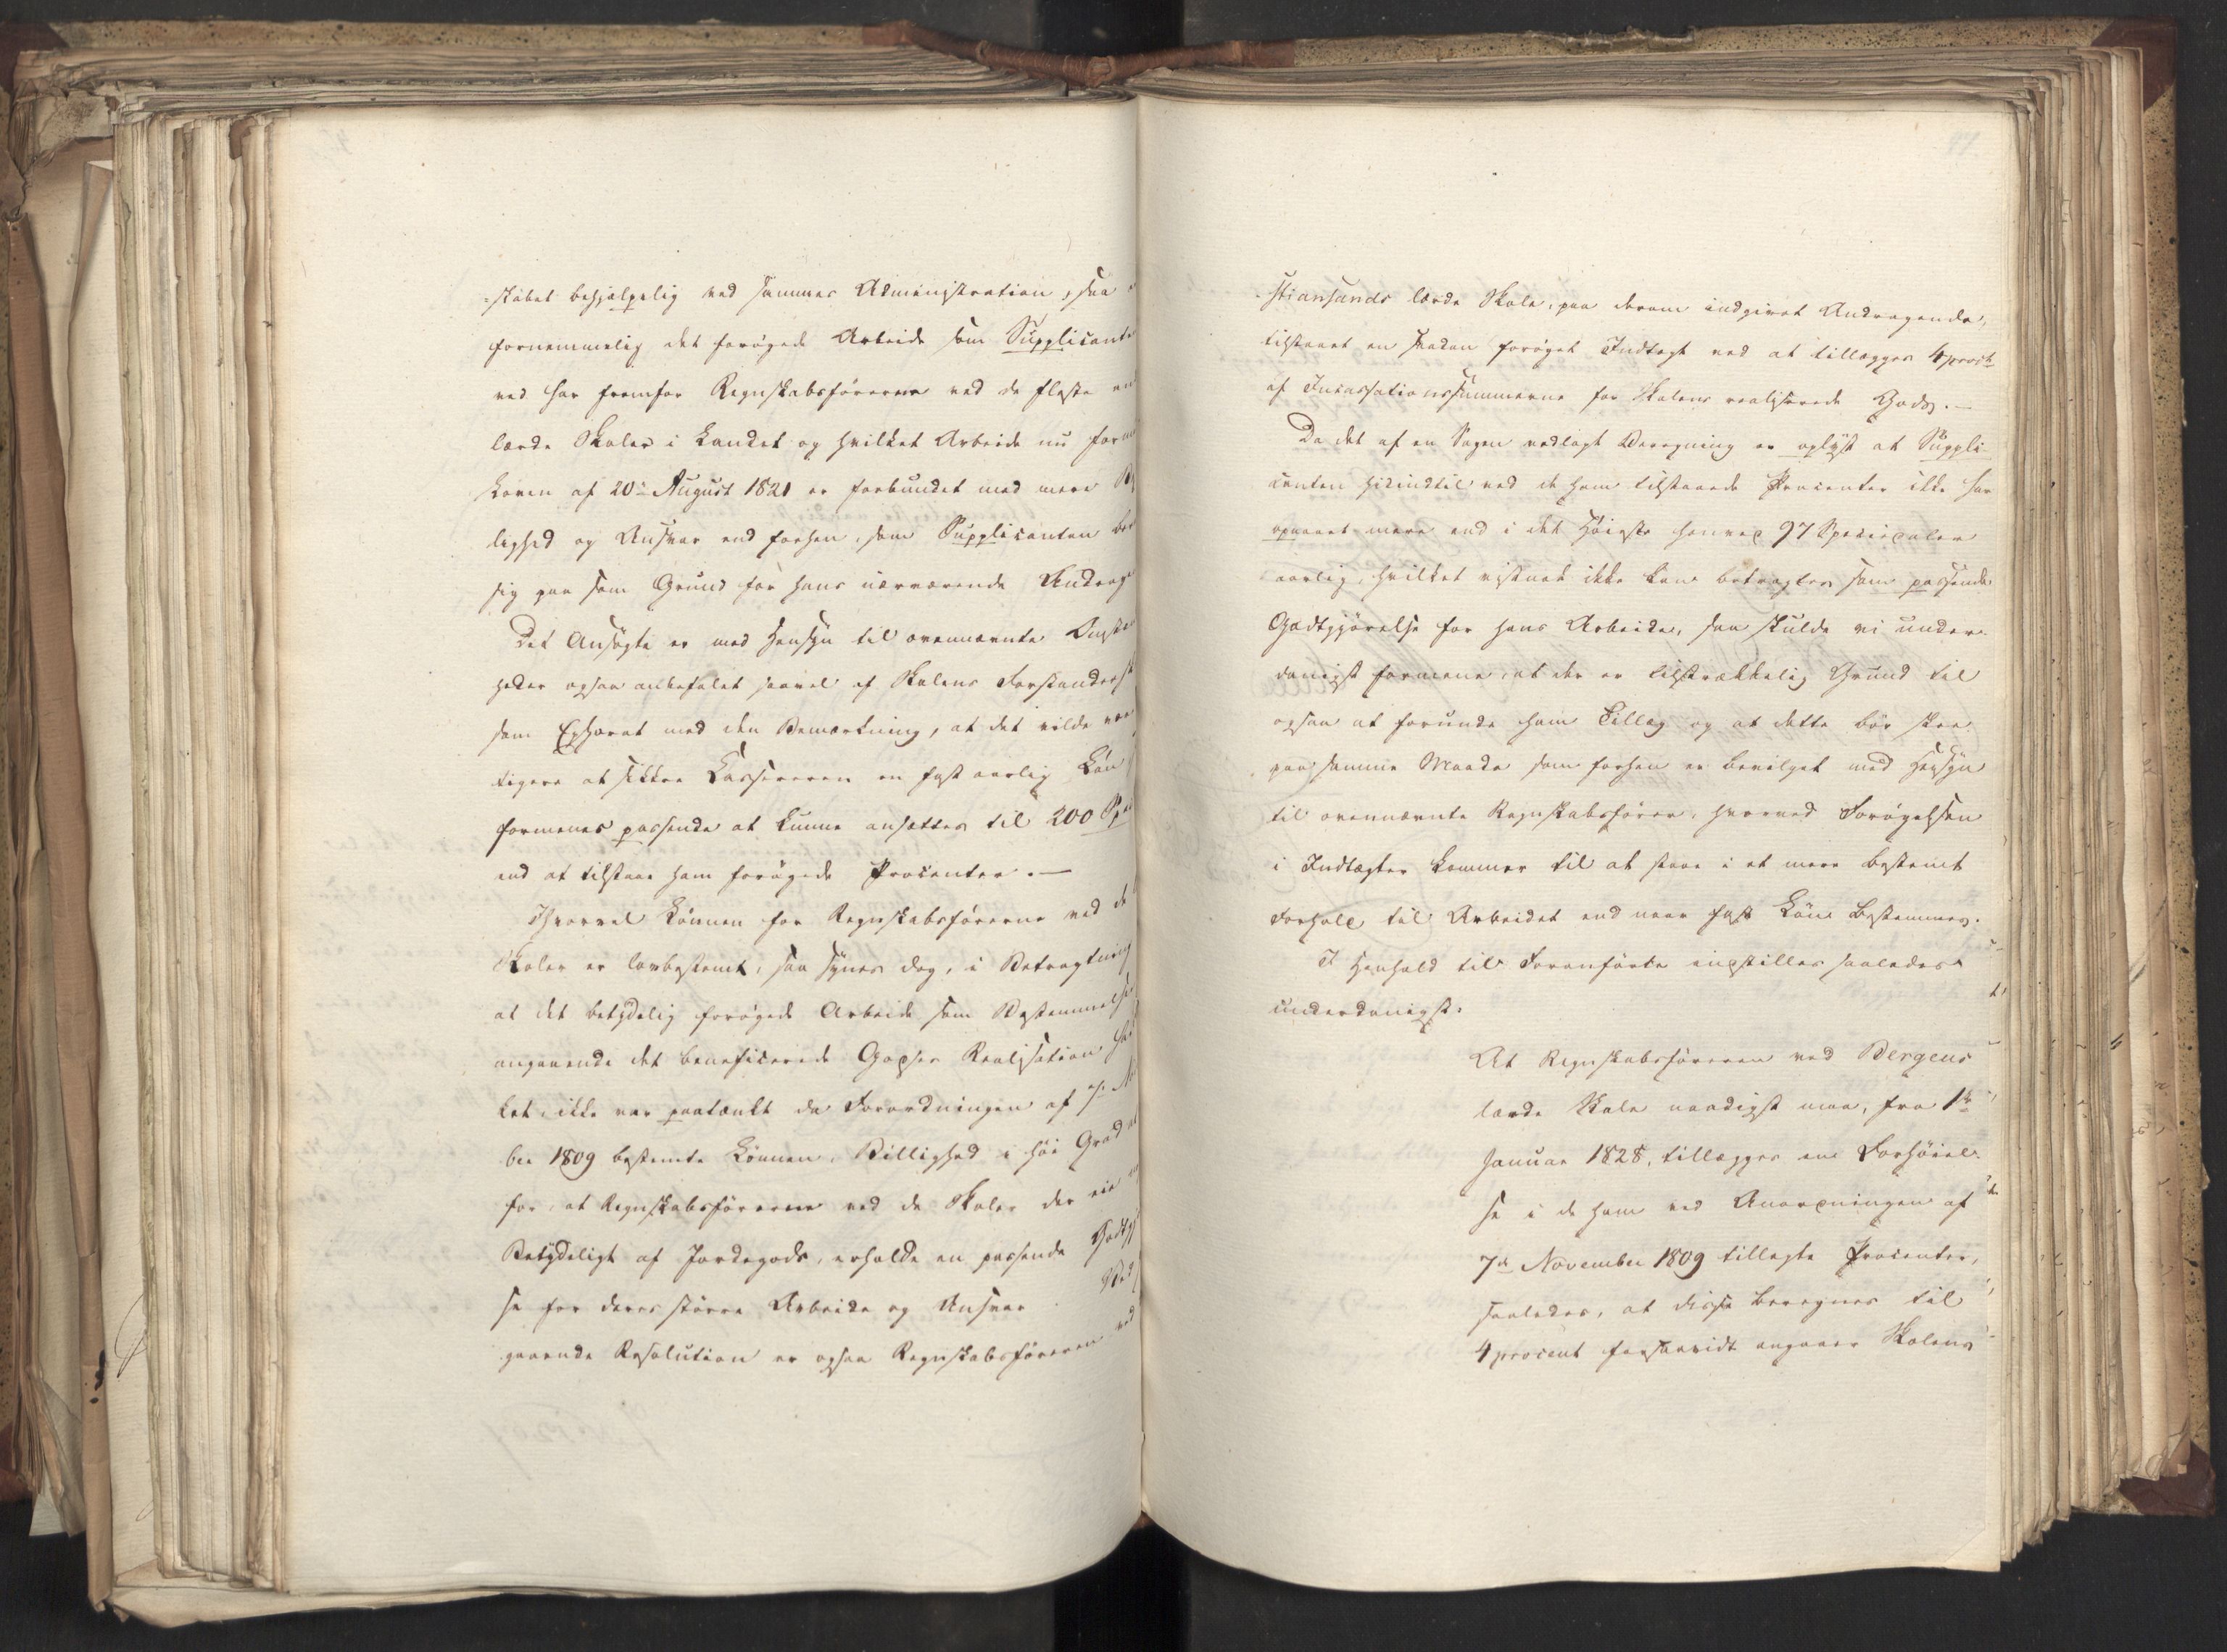 -skabet behjælpelig ved sammes Administration, saa
fornemmelig det forøgede Arbeide som Supplicante
ved har fremfor Regnskabsførerne ved de fleste
lærde Skoler i Landet og hvilket Arbeide nu
Loven af 20de August 1821 er forbundet med mere
lighed og Ansvar end forhen, som Supplicanten
sig paa som Grund for hans nærværende
Det Ansøgte er med Hensyn til ovennævnte
heder ogsaa anbefalet saavel af Skolens
som Ephorat med den Bemærkning, at det vilde
tigere at sikkre Kassereren en fast aarlig Løn
formenes passende at kunne ansættes til 200
end at tilstaae ham forøgede Procenter. —
Hvorvel Lønnen for Regnskabsførerne ved
Skoler er lovbestemt, saa synes dog, i Betragtning
at det betydelig forøgede Arbeide som Bestemmelse
angaaende det beneficerede Godses Realisation
ket ikke var paatænkt da Forordningen af 7de
ber 1809 bestemte Lønnen, Billighed i høi Grad
for, at Regnskabsførerne ved de Skoler der eie
Betydeligt af Jordegods, erholde en passende
se for deres større Arbeide og Ansvar
gaaende Resolution er ogsaa Regnskabsføreren ved
-stiansands lærde Skole, paa derom indgivet Andragende,
tilstaaet en saadan forøget Indtægt ved at tillægges 4 procent
af Incassationssummerne for Skolens realiserede Gods. —
Da det af en Sagen vedlagt Beregning er oplyst at Suppli-
canten hidindtil ved de ham tilstaaede Procenter ikke har
opnaaet mere end i det Høieste henved 97 Speciedaler
aarlig, hvilket vistnok ikke kan betragtes som passende
Godtgjørelse for hans Arbeide, saa skulde vi under-
danigst formene, at der er tilstrækkelig Grund til
ogsaa at forunde ham Tillæg og at dette bør skee
paa samme Maade som forhen er bevilget med Hensyn
til ovennævnte Regnskabsfører, hvorved Forøgelsen
i Indtægter kommer til at staae i et mere bestemt
Forhold til Arbeidet end naar fast Løn bestemmes.
I Henhold til Foranførte indstilles saaledes
underdanigst:
At Regnskabsføreren ved Bergens
lærde Skole naadigst maa, fra 1ste
Januar 1828, tillægges en Forhøiel-
se i de ham ved Anordningen af
7de November 1809 tillagte Procenter,
saaledes, at disse beregnes til
4 procent forsaavidt angaaer Skolens